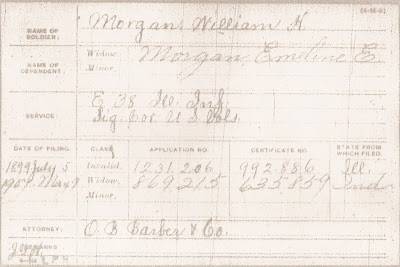 NAME OF SOLDIER: Morgan, William H.
NAME OF DEPENDENT: Widow, Morgan, Emeline E.
Minor,
SERVICE: E 38 Ill. Inf.
Sig. Cor. U.S. Vols.
DATE OF FILING. CLASS. APPLICATION NO. CERTIFICATE NO. STATE FROM WHICH FILED.
1899 July 5 Invalid, 1231206 992886 Ill.
1907 May 9 Widow, 869215 635859 Ind.
Minor,
ATTORNEY: O B Barber & Co.